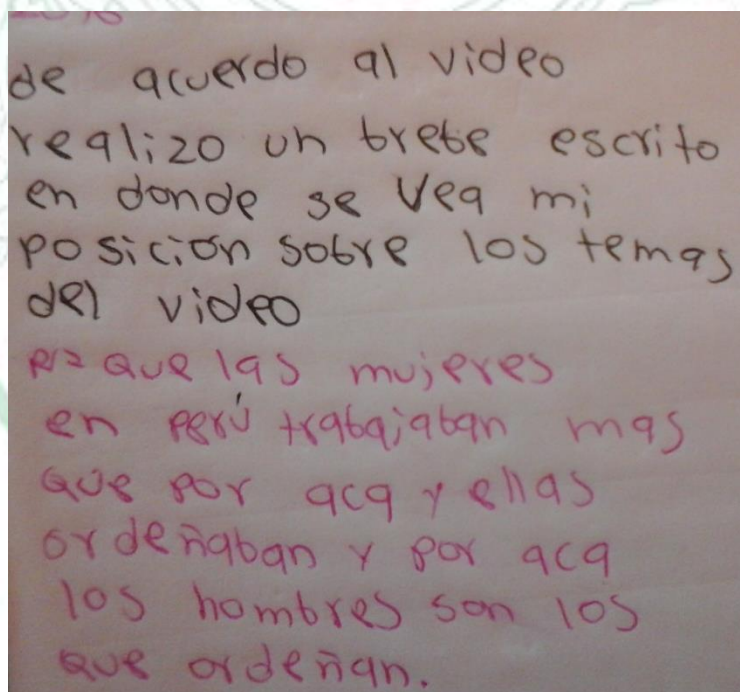 de acuerdo al video
realizo un brebe escrito
en donde se vea mi
posición sobre los temas
del video
R/= Que las mujeres
en perú trabajaban mas
que por aca y ellas
ordeñaban y por aca
los hombres son los
que ordeñan.